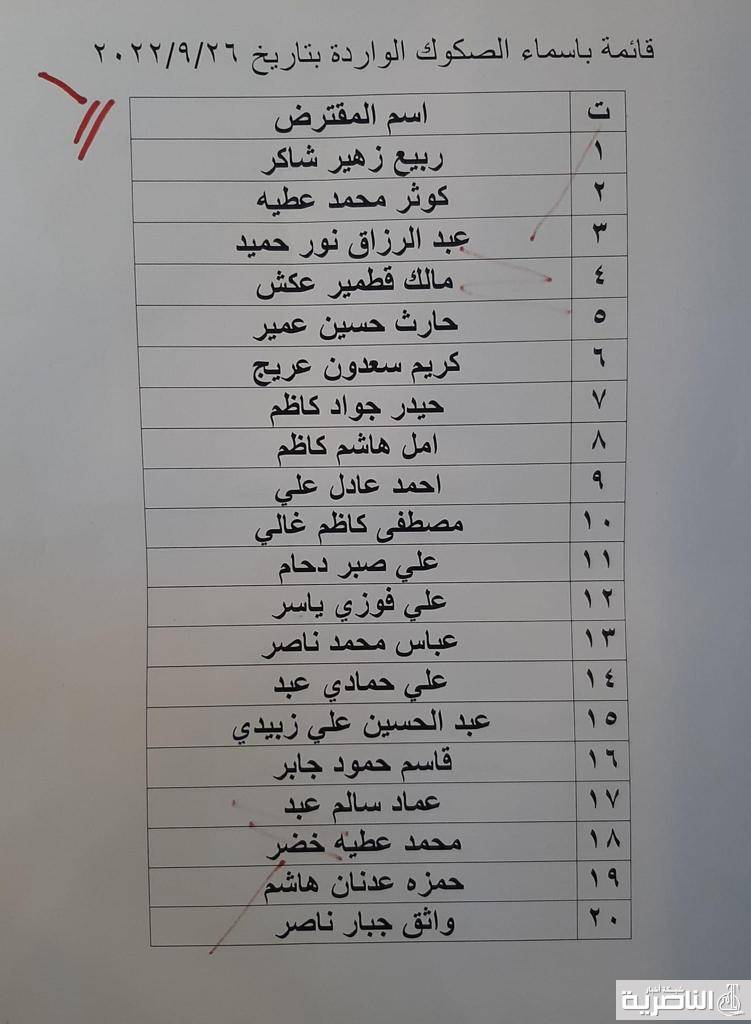 قائمة باسماء الصكوك الواردة بتاريخ ٢٠٢٢/٩/٢٦
ت اسم المقترض
١ ربيع زهير شاكر
٢ كوثر محمد عطيه
٣ عبد الرزاق نور حميد
٤ مالك قطمير عكش
٥ حارث حسين عمير
٦ كريم سعدون عريج
٧ حيدر جواد كاظم
٨ امل هاشم كاظم
٩ احمد عادل علي
١٠ مصطفى كاظم غالي
١١ علي صبر دحام
١٢ علي فوزي ياسر
١٣ عباس محمد ناصر
١٤ علي حمادي عبد
١٥ عبد الحسين علي زبيدي
١٦ قاسم حمود جابر
١٧ عماد سالم عبد
١٨ محمد عطيه خضر
١٩ حمزه عدنان هاشم
٢٠ واثق جبار ناصر
شبكة أخبار
الناصرية